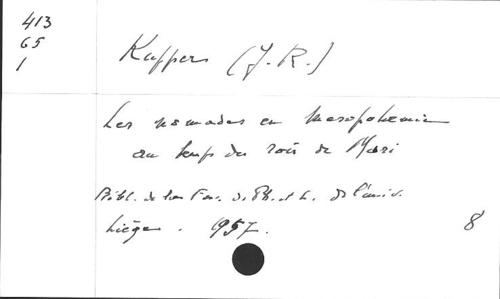 413
65
1
Kupper (J. R.)
Les nomades en Mesopotamie
au temps des rois de Mari
Bibl. de la Fac. de Ph. et L. de l'univ.
Liège. 1957.
8